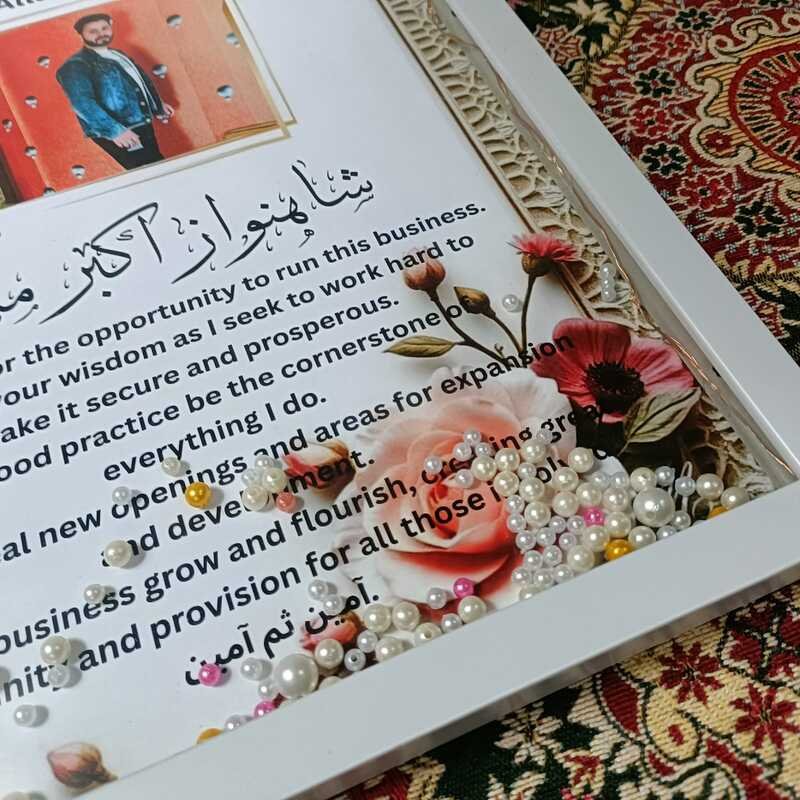 شاہنواز اکبر
the opportunity to run this business.
your wisdom as I seek to work hard to
make it secure and prosperous.
good practice be the cornerstone of
everything I do.
new openings and areas for expansion
and development.
business grow and flourish, creating great
and provision for all those involved
آمین ثم آمین.